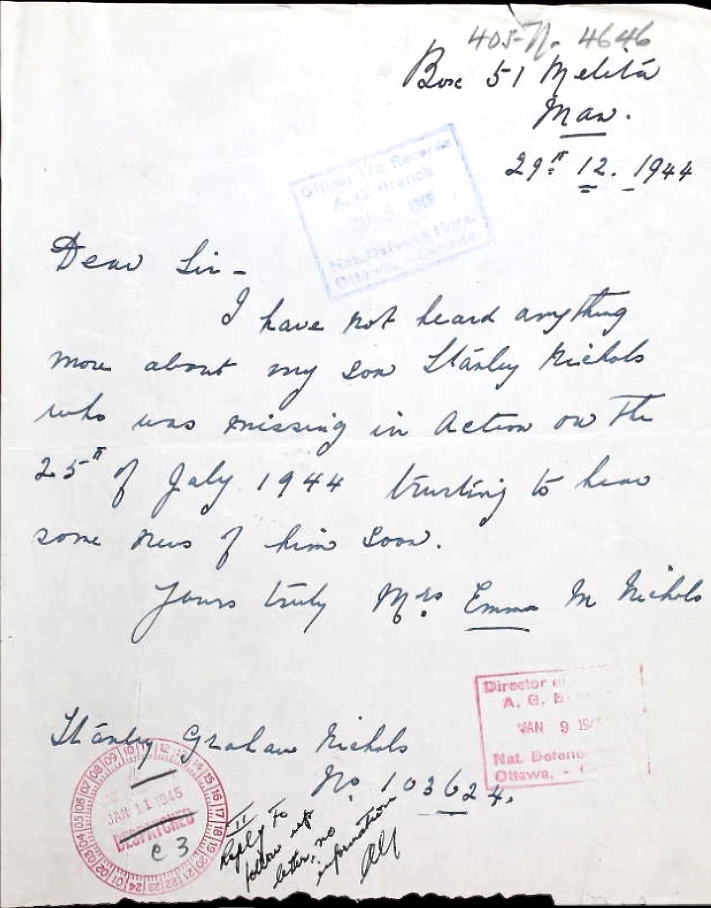 405-N. 4646
Box 51 Melita
Man.
29th 12. 1944
Officer i/c Records
A. G. Branch
1945
Nat. Defence Hqrs.
Ottawa, Canada.
Dear Sir -
I have not heard anything
more about my son Stanley Nichols
who was missing in Action on the
25th of July 1944 trusting to hear
some news of him soon.
Yours truly Mrs Emma M Nichols
Director of
A. G. B
JAN 9 194
Nat. Defenc
Ottawa. - C
Stanley Graham Nichols
No. 103624.
JAN 11 1945
DESPATCHED
C 3
Reply to
follow up
letter, no
information